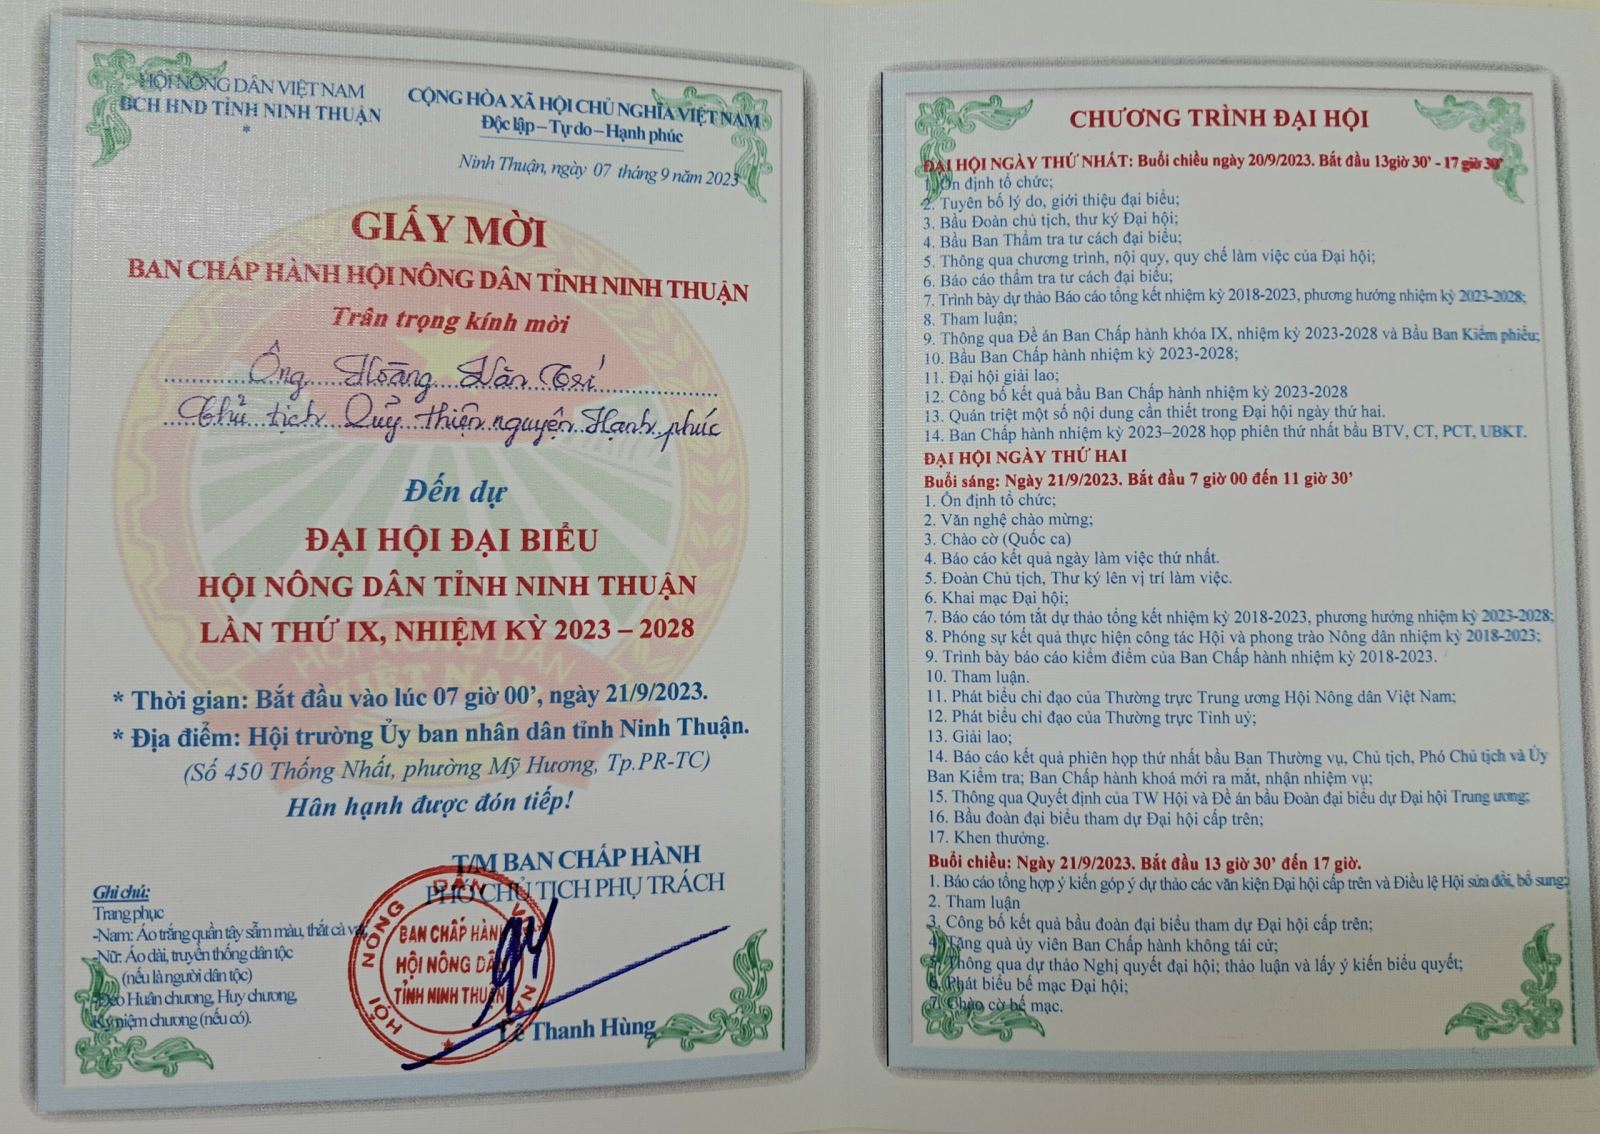 HỘI NÔNG DÂN VIỆT NAM
BCH HND TỈNH NINH THUẬN
*
CỘNG HÒA XÃ HỘI CHỦ NGHĨA VIỆT NAM
Độc lập – Tự do – Hạnh phúc
Ninh Thuận, ngày 07 tháng 9 năm 2023
GIẤY MỜI
BAN CHẤP HÀNH HỘI NÔNG DÂN TỈNH NINH THUẬN
Trân trọng kính mời
Ông Hoàng Văn Trí
Chủ tịch Quỹ thiện nguyện Hạnh phúc
Đến dự
ĐẠI HỘI ĐẠI BIỂU
HỘI NÔNG DÂN TỈNH NINH THUẬN
LẦN THỨ IX, NHIỆM KỲ 2023 – 2028
HỘI NÔNG DÂN
VIỆT NAM
* Thời gian: Bắt đầu vào lúc 07 giờ 00’, ngày 21/9/2023.
* Địa điểm: Hội trường Ủy ban nhân dân tỉnh Ninh Thuận.
(Số 450 Thống Nhất, phường Mỹ Hương, Tp.PR-TC)
Hân hạnh được đón tiếp!
T/M BAN CHẤP HÀNH
PHÓ CHỦ TỊCH PHỤ TRÁCH
HỘI NÔNG DÂN VIỆT NAM
BAN CHẤP HÀNH
HỘI NÔNG DÂN
TỈNH NINH THUẬN
Lê Thanh Hùng
Ghi chú:
Trang phục
-Nam: Áo trắng quần tây sẫm màu, thắt cà vạt.
-Nữ: Áo dài, truyền thống dân tộc
(nếu là người dân tộc)
-Đeo Huân chương, Huy chương,
Kỷ niệm chương (nếu có).
CHƯƠNG TRÌNH ĐẠI HỘI
ĐẠI HỘI NGÀY THỨ NHẤT: Buổi chiều ngày 20/9/2023. Bắt đầu 13giờ 30’ - 17 giờ 30’
1. Ổn định tổ chức;
2. Tuyên bố lý do, giới thiệu đại biểu;
3. Bầu Đoàn chủ tịch, thư ký Đại hội;
4. Bầu Ban Thẩm tra tư cách đại biểu;
5. Thông qua chương trình, nội quy, quy chế làm việc của Đại hội;
6. Báo cáo thẩm tra tư cách đại biểu;
7. Trình bày dự thảo Báo cáo tổng kết nhiệm kỳ 2018-2023, phương hướng nhiệm kỳ 2023-2028;
8. Tham luận;
9. Thông qua Đề án Ban Chấp hành khóa IX, nhiệm kỳ 2023-2028 và Bầu Ban Kiểm phiếu;
10. Bầu Ban Chấp hành nhiệm kỳ 2023-2028;
11. Đại hội giải lao;
12. Công bố kết quả bầu Ban Chấp hành nhiệm kỳ 2023-2028
13. Quán triệt một số nội dung cần thiết trong Đại hội ngày thứ hai.
14. Ban Chấp hành nhiệm kỳ 2023–2028 họp phiên thứ nhất bầu BTV, CT, PCT, UBKT.
ĐẠI HỘI NGÀY THỨ HAI
Buổi sáng: Ngày 21/9/2023. Bắt đầu 7 giờ 00 đến 11 giờ 30’
1. Ổn định tổ chức;
2. Văn nghệ chào mừng;
3. Chào cờ (Quốc ca)
4. Báo cáo kết quả ngày làm việc thứ nhất.
5. Đoàn Chủ tịch, Thư ký lên vị trí làm việc.
6. Khai mạc Đại hội;
7. Báo cáo tóm tắt dự thảo tổng kết nhiệm kỳ 2018-2023, phương hướng nhiệm kỳ 2023-2028;
8. Phóng sự kết quả thực hiện công tác Hội và phong trào Nông dân nhiệm kỳ 2018-2023;
9. Trình bày báo cáo kiểm điểm của Ban Chấp hành nhiệm kỳ 2018-2023.
10. Tham luận.
11. Phát biểu chỉ đạo của Thường trực Trung ương Hội Nông dân Việt Nam;
12. Phát biểu chỉ đạo của Thường trực Tỉnh uỷ;
13. Giải lao;
14. Báo cáo kết quả phiên họp thứ nhất bầu Ban Thường vụ, Chủ tịch, Phó Chủ tịch và Ủy
Ban Kiểm tra; Ban Chấp hành khoá mới ra mắt, nhận nhiệm vụ;
15. Thông qua Quyết định của TW Hội và Đề án bầu Đoàn đại biểu dự Đại hội Trung ương;
16. Bầu đoàn đại biểu tham dự Đại hội cấp trên;
17. Khen thưởng.
Buổi chiều: Ngày 21/9/2023. Bắt đầu 13 giờ 30’ đến 17 giờ.
1. Báo cáo tổng hợp ý kiến góp ý dự thảo các văn kiện Đại hội cấp trên và Điều lệ Hội sửa đổi, bổ sung;
2. Tham luận
3. Công bố kết quả bầu đoàn đại biểu tham dự Đại hội cấp trên;
4. Tặng quà ủy viên Ban Chấp hành không tái cử;
5. Thông qua dự thảo Nghị quyết đại hội; thảo luận và lấy ý kiến biểu quyết;
6. Phát biểu bế mạc Đại hội;
7. Chào cờ bế mạc.